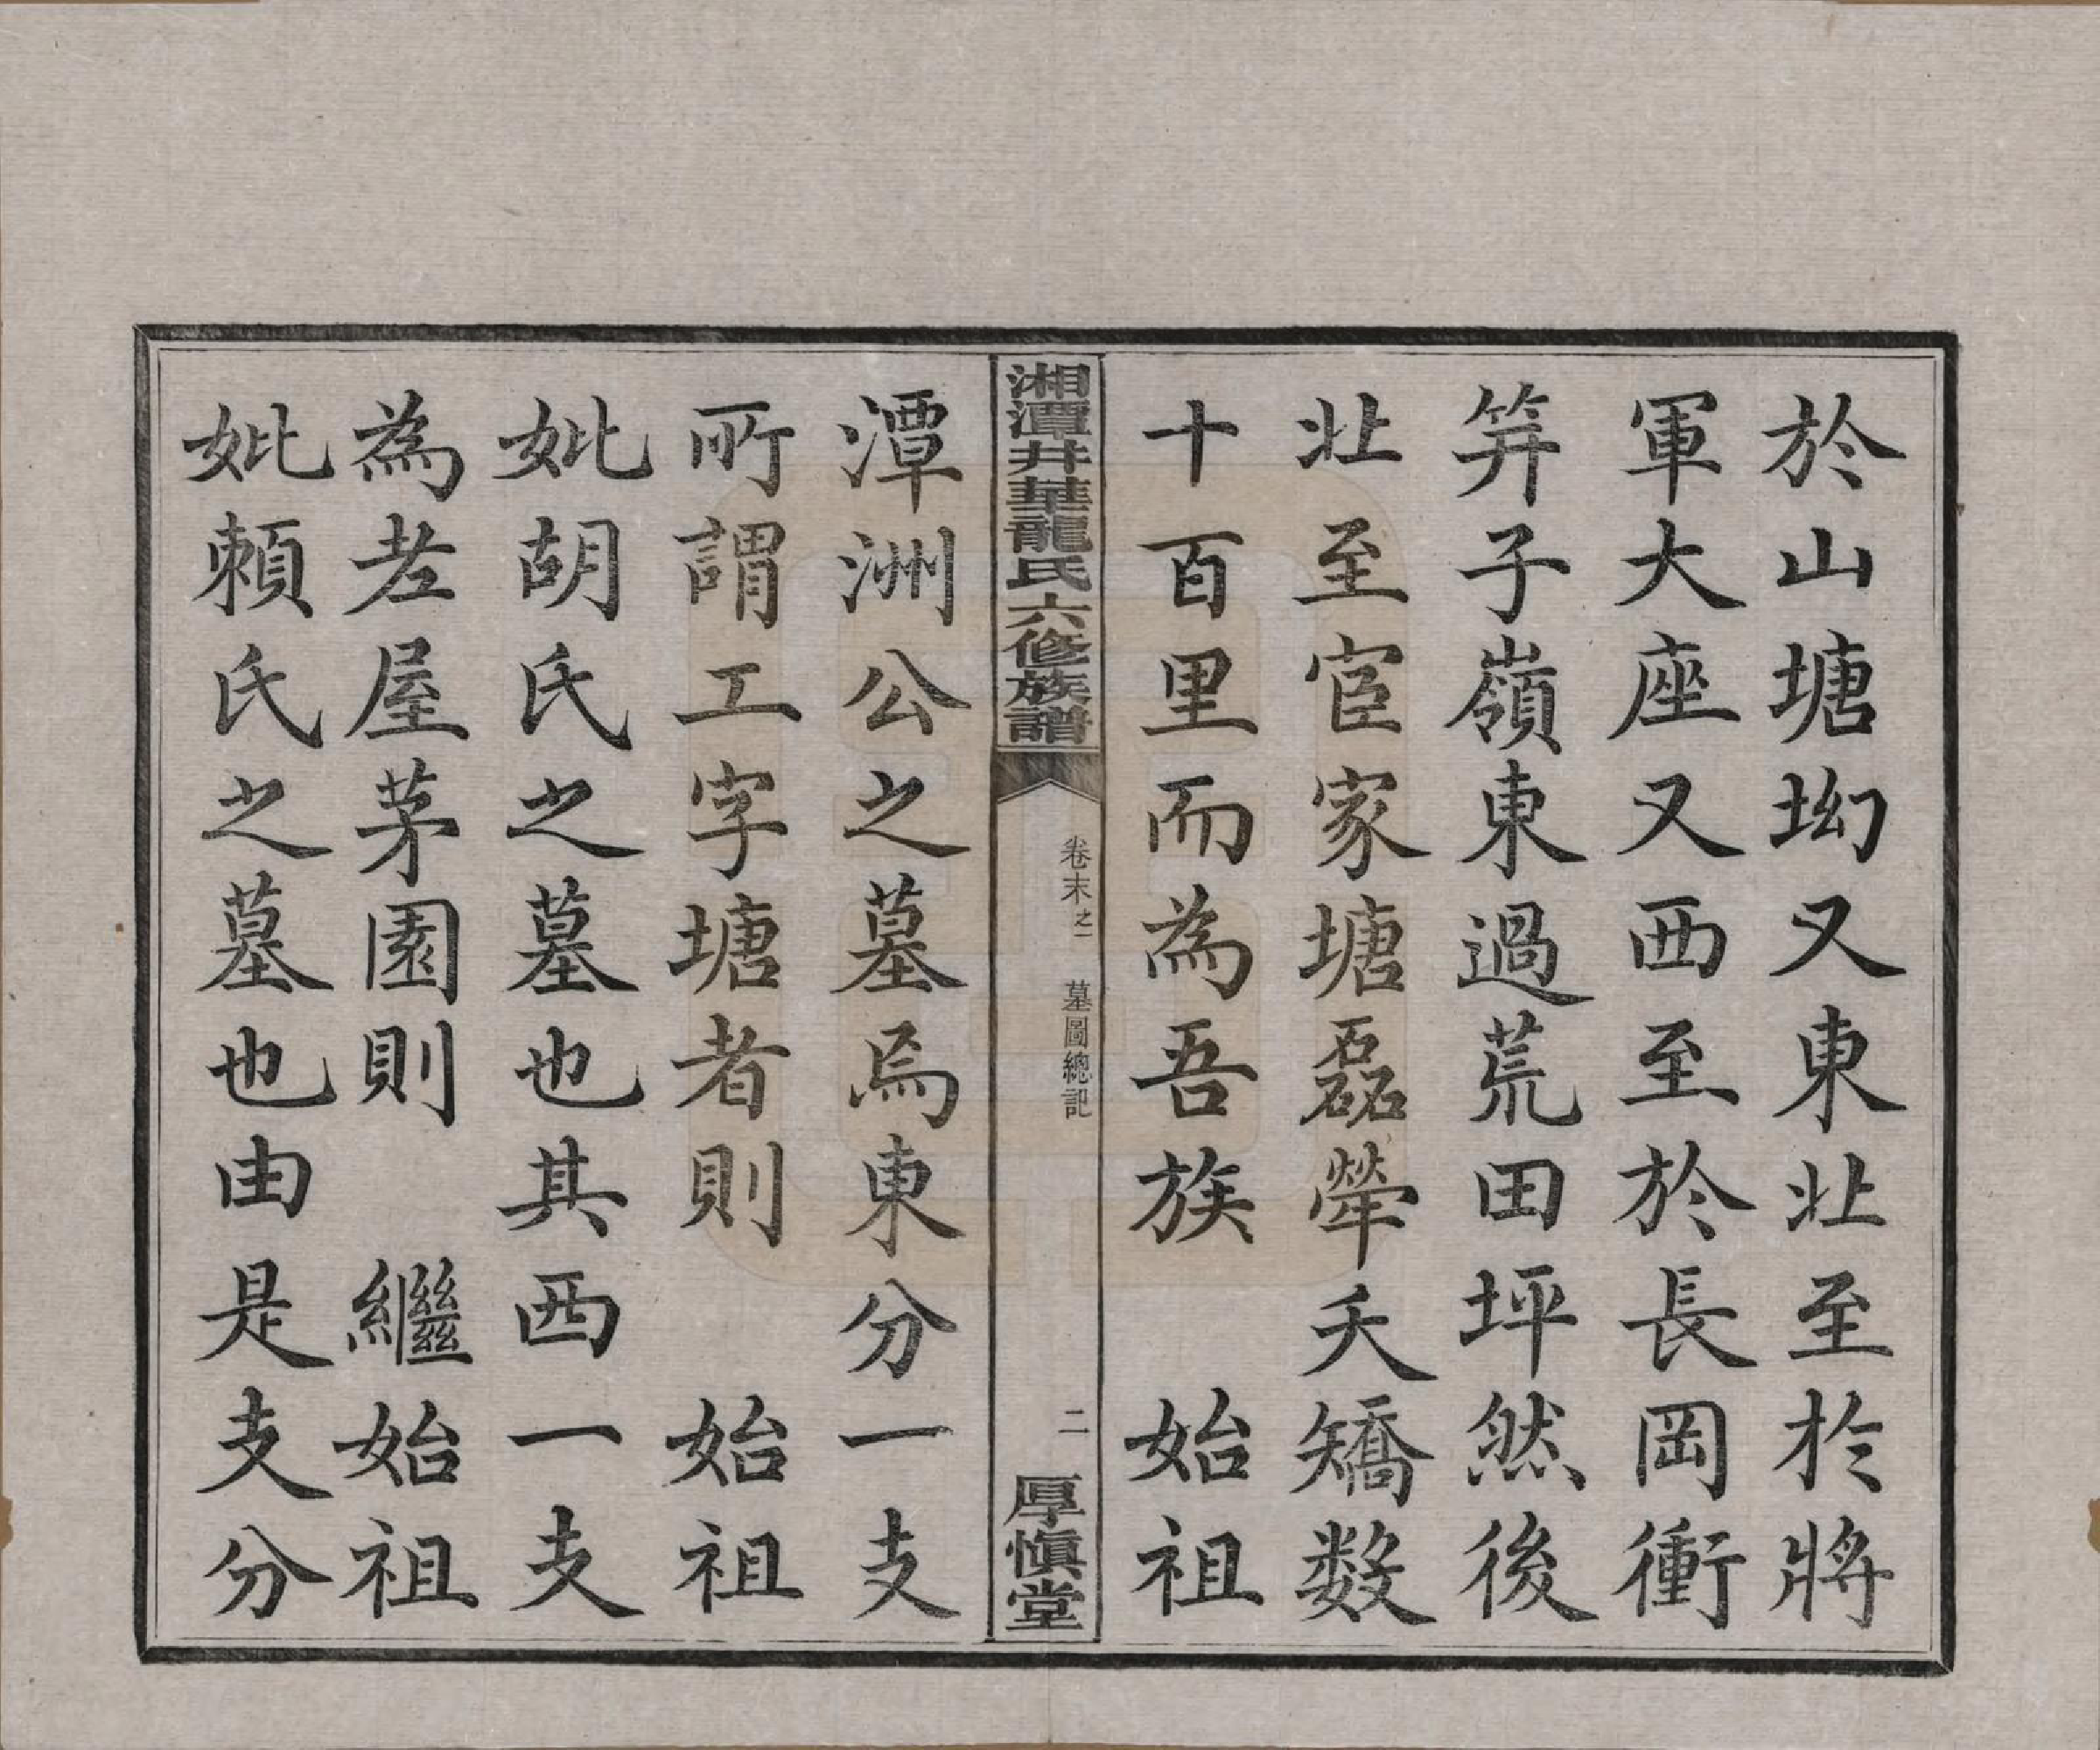 於山塘坳又東北至於將
軍大座又西至於長岡衝
筭子嶺東過荒田坪然後
北至宦家塘磊犖夭矯数
十百里而為吾族　始祖
湘潭井華龍氏六修族譜
卷末之一　墓圖總記
二
厚慎堂
潭洲公之墓焉東分一支
所謂工字塘者則　始祖
妣胡氏之墓也其西一支
為老屋茅園則　繼始祖
妣賴氏之墓也由是支分